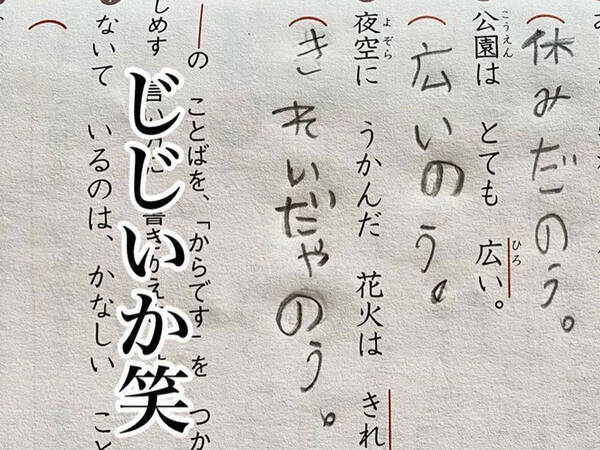 （休みだのう。
公園は とても 広い。
こうえん
ひろ
（広いのう。
夜空に うかんだ 花火は きれ
よぞら
（きれいだゃのう。
の ことばを、「からです」を つか
しめす
ないて いるのは、かなしい こと
（
じじいか笑